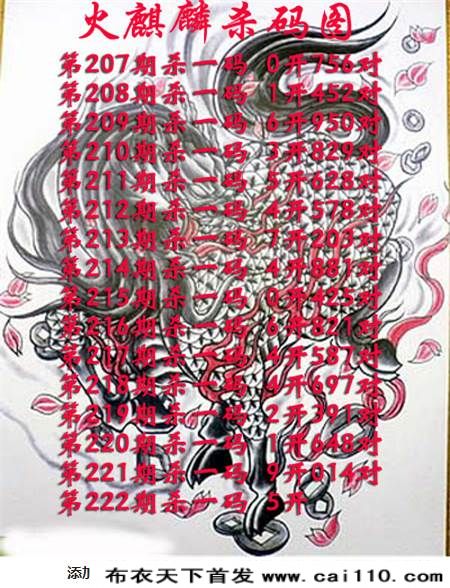 火麒麟杀码图
第207期杀一码 0开756对
第208期杀一码 1开452对
第209期杀一码 6开950对
第210期杀一码 3开829对
第211期杀一码 5开628对
第212期杀一码 4开578对
第213期杀一码 7开203对
第214期杀一码 4开881对
第215期杀一码 0开425对
第216期杀一码 6开821对
第217期杀一码 4开587对
第218期杀一码 4开697对
第219期杀一码 2开391对
第220期杀一码 1开648对
第221期杀一码 9开014对
第222期杀一码 5开
布衣天下首发 www.cai110.com